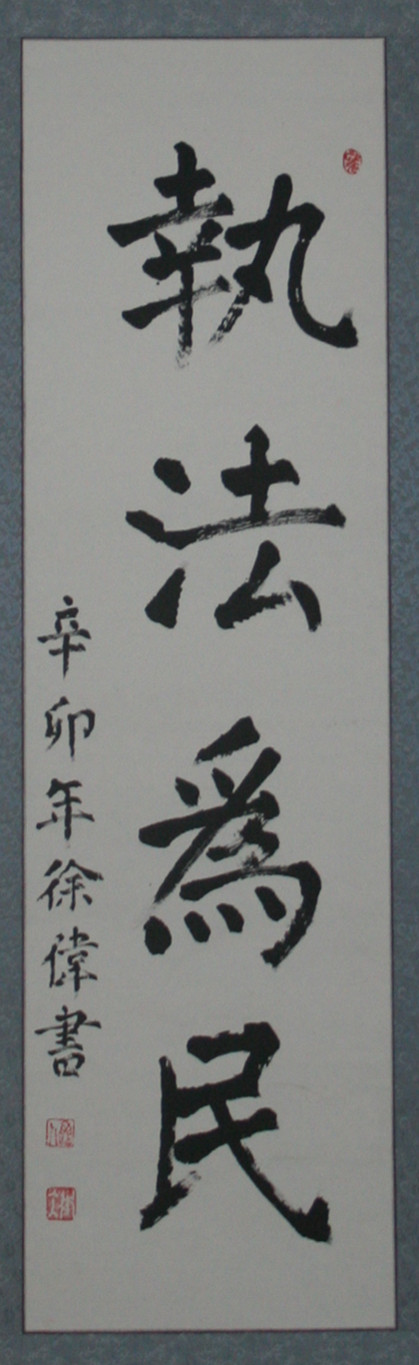 執法為民
辛卯年徐偉書